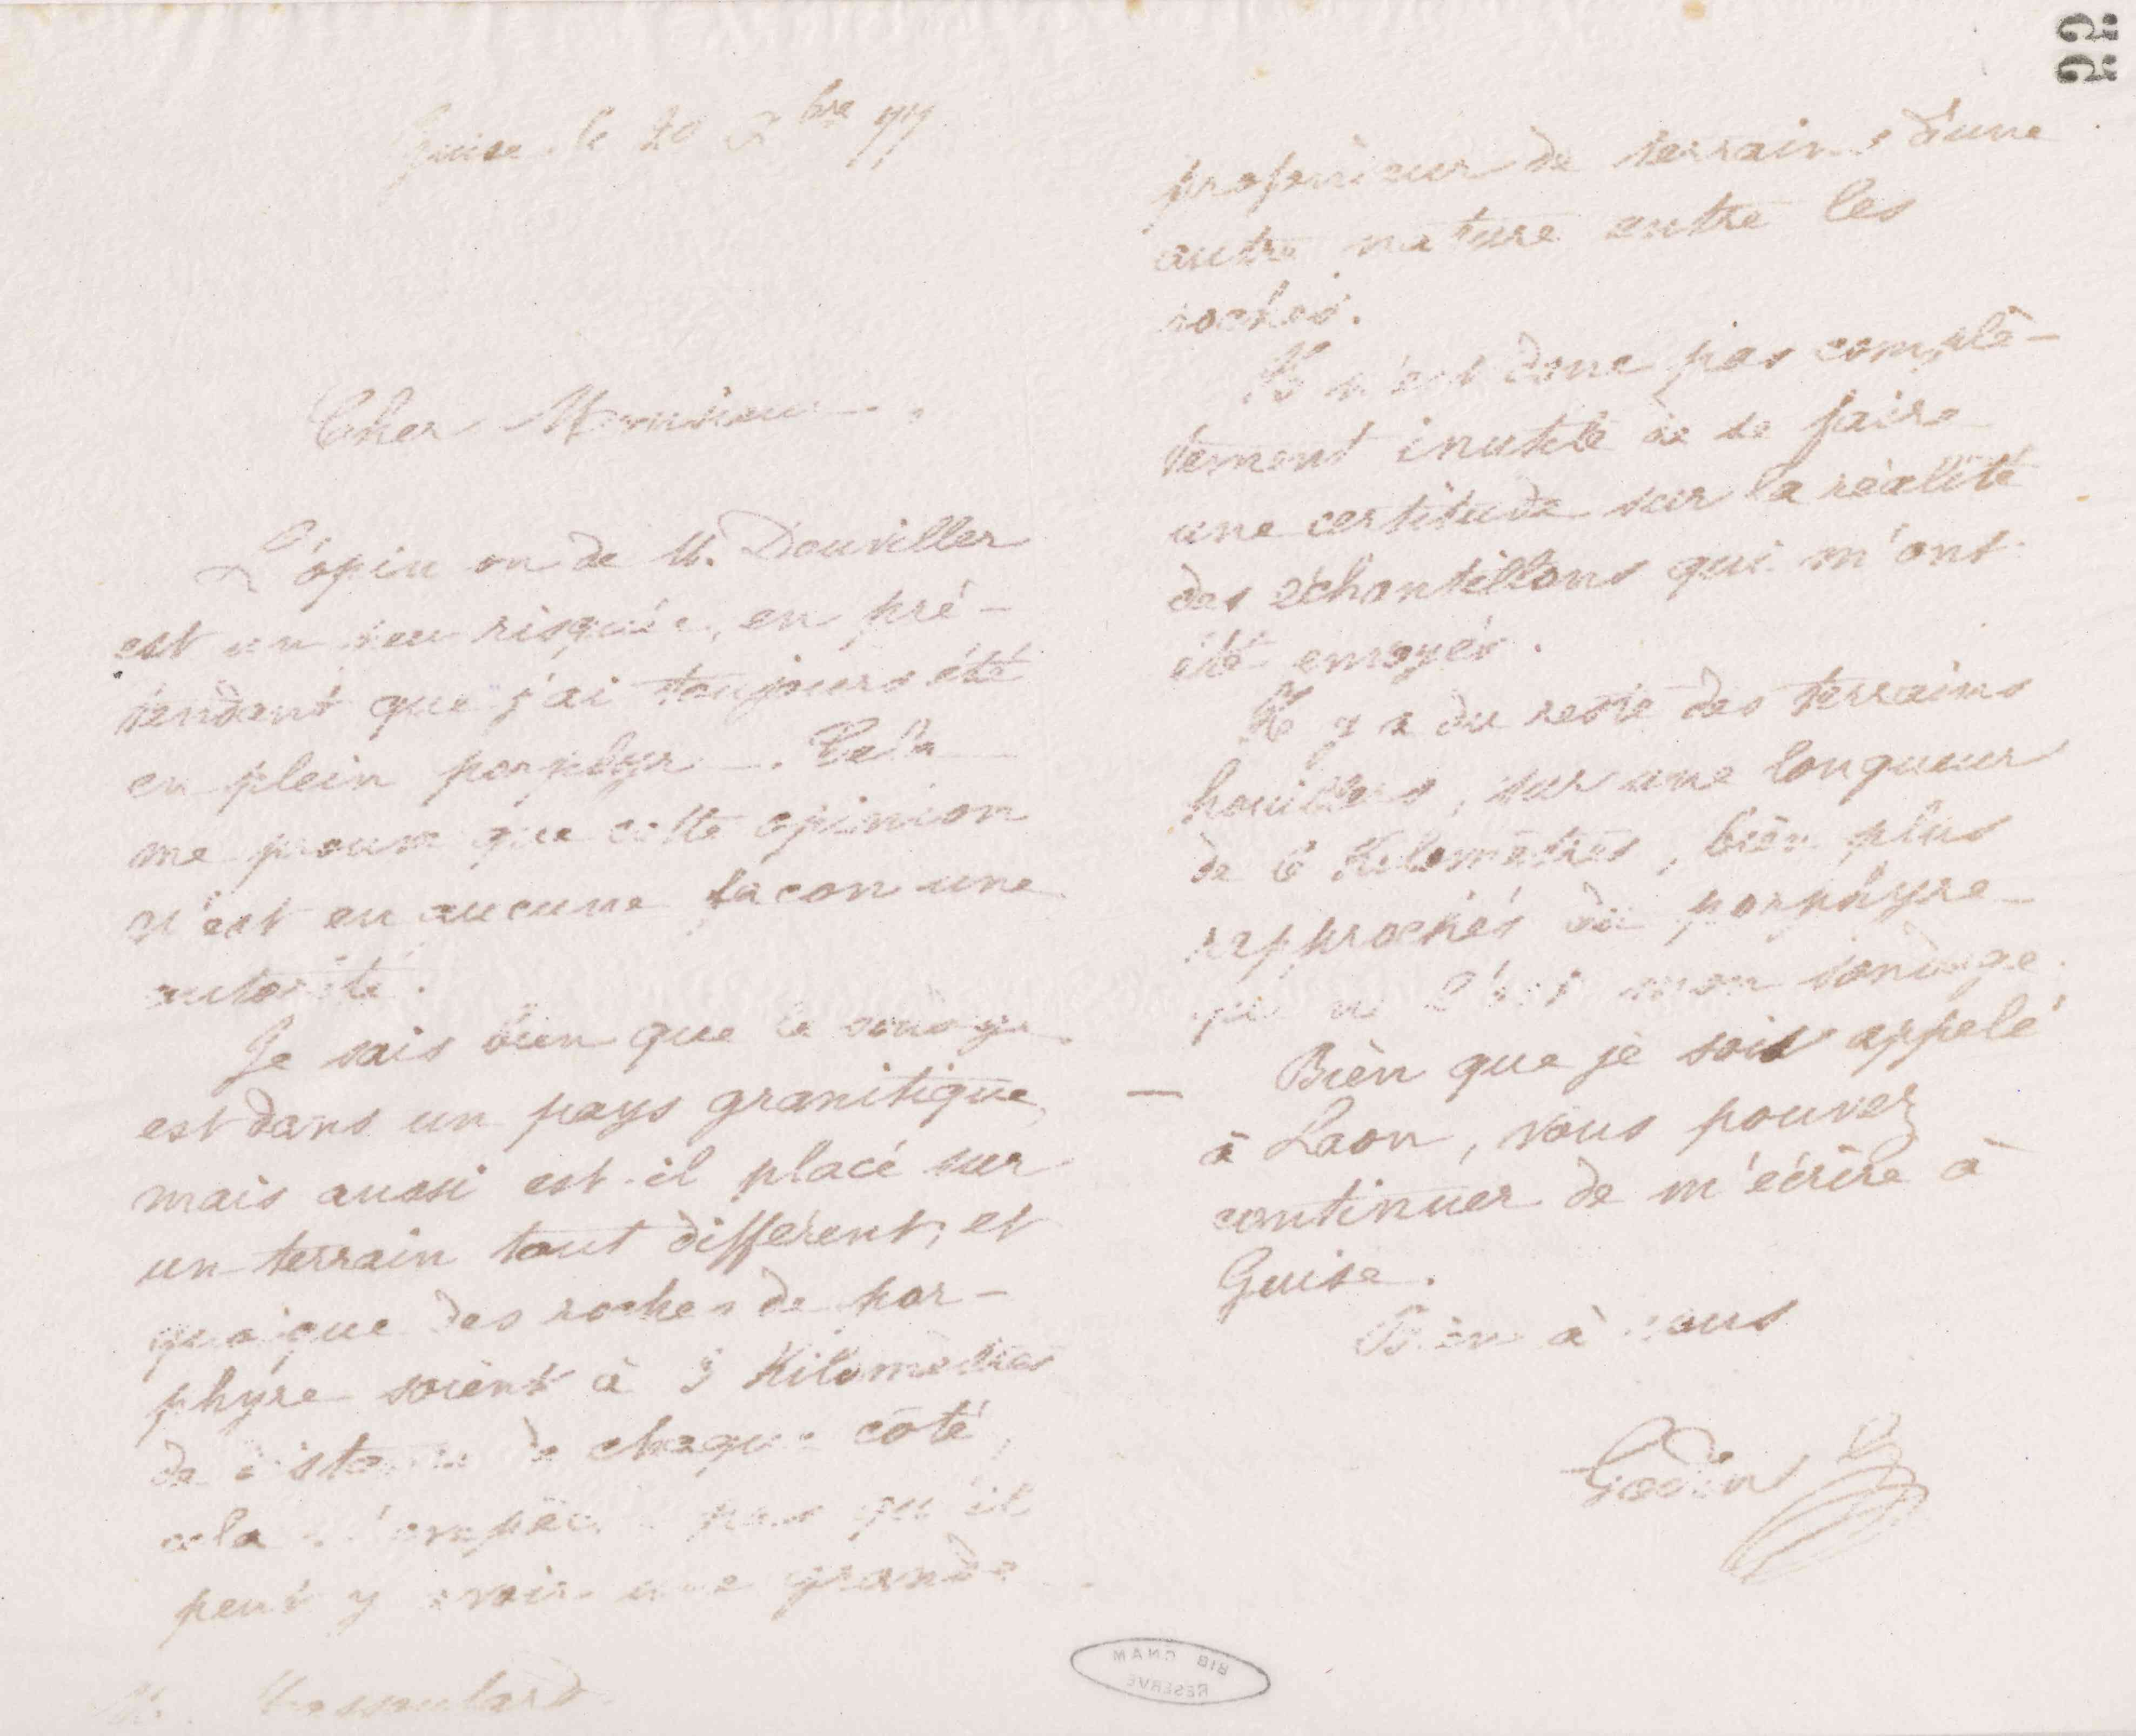 55
Guise le 20 Xbre 77
Cher Monsieur,
L'opinion de M. Douviller
est un peu risquée, en pré-
tendant que j'ai toujours été
en plein porphyre. Cela
me prouve que cette opinion
n'est en aucune façon une
autorité.
Je sais bien que le sondage
est dans un pays granitique,
mais aussi est-il placé sur
un terrain tout différent, et
quoique des roches de por-
phyre soient à 3 Kilomètres
de distance de chaque côté,
cela n'empêche pas qu'il
peut y avoir une grande
M. Massoulard
profondeur de terrains d'une
autre nature entre les
roches.
Il n'est donc pas complè-
tement inutile de se faire
une certitude sur la réalité
des échantillons qui m'ont
été envoyés.
Il y a du reste des terrains
houillers, sur une longueur
de 6 Kilomètres, bien plus
rapprochés du porphyre
que ne l'est mon sondage.
— Bien que je sois appelé
à Laon, vous pouvez
continuer de m'écrire à
Guise.
Bien à vous
Godin
BIB CNAM
RESERVE